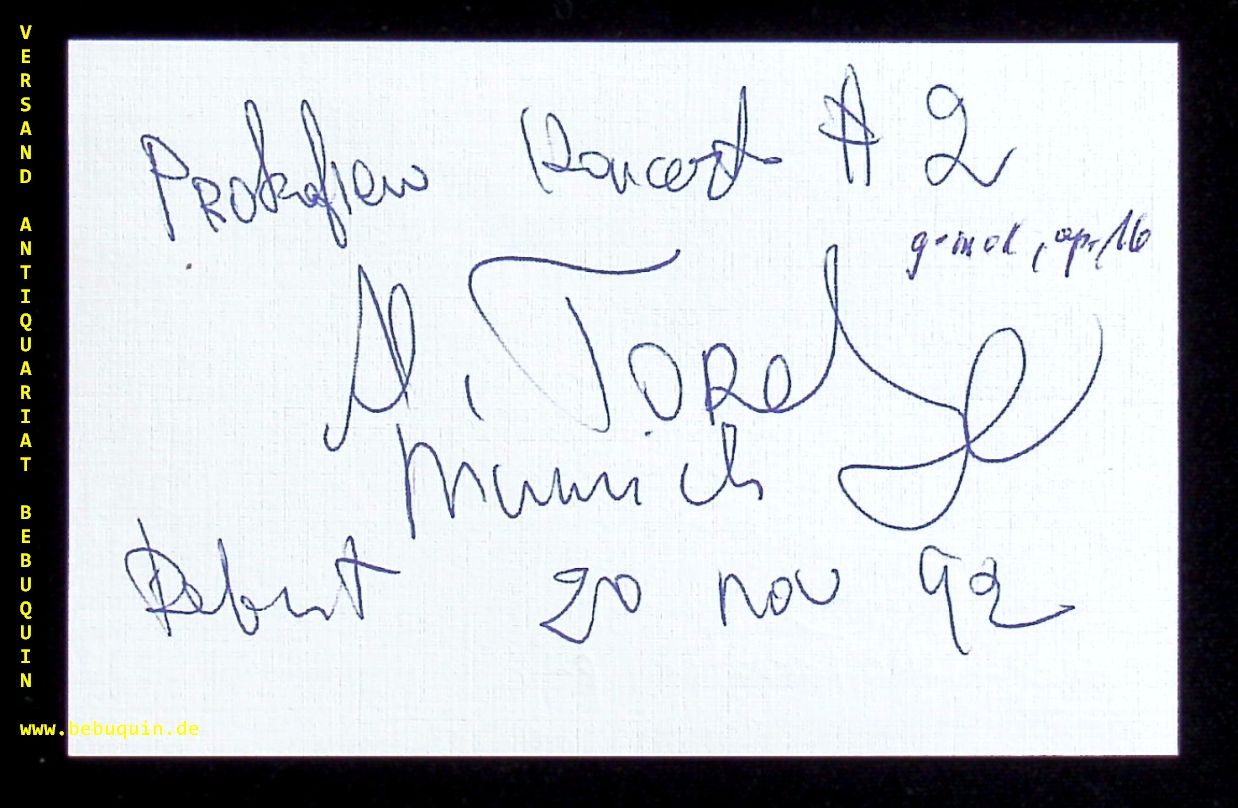 VERSAND ANTIQUARIAT BEBUQUIN
Prokofiew Koncert # 2
g-moll, op. 16
A. Toradze
Munich
Debut 20 nov 92
www.bebuquin.de